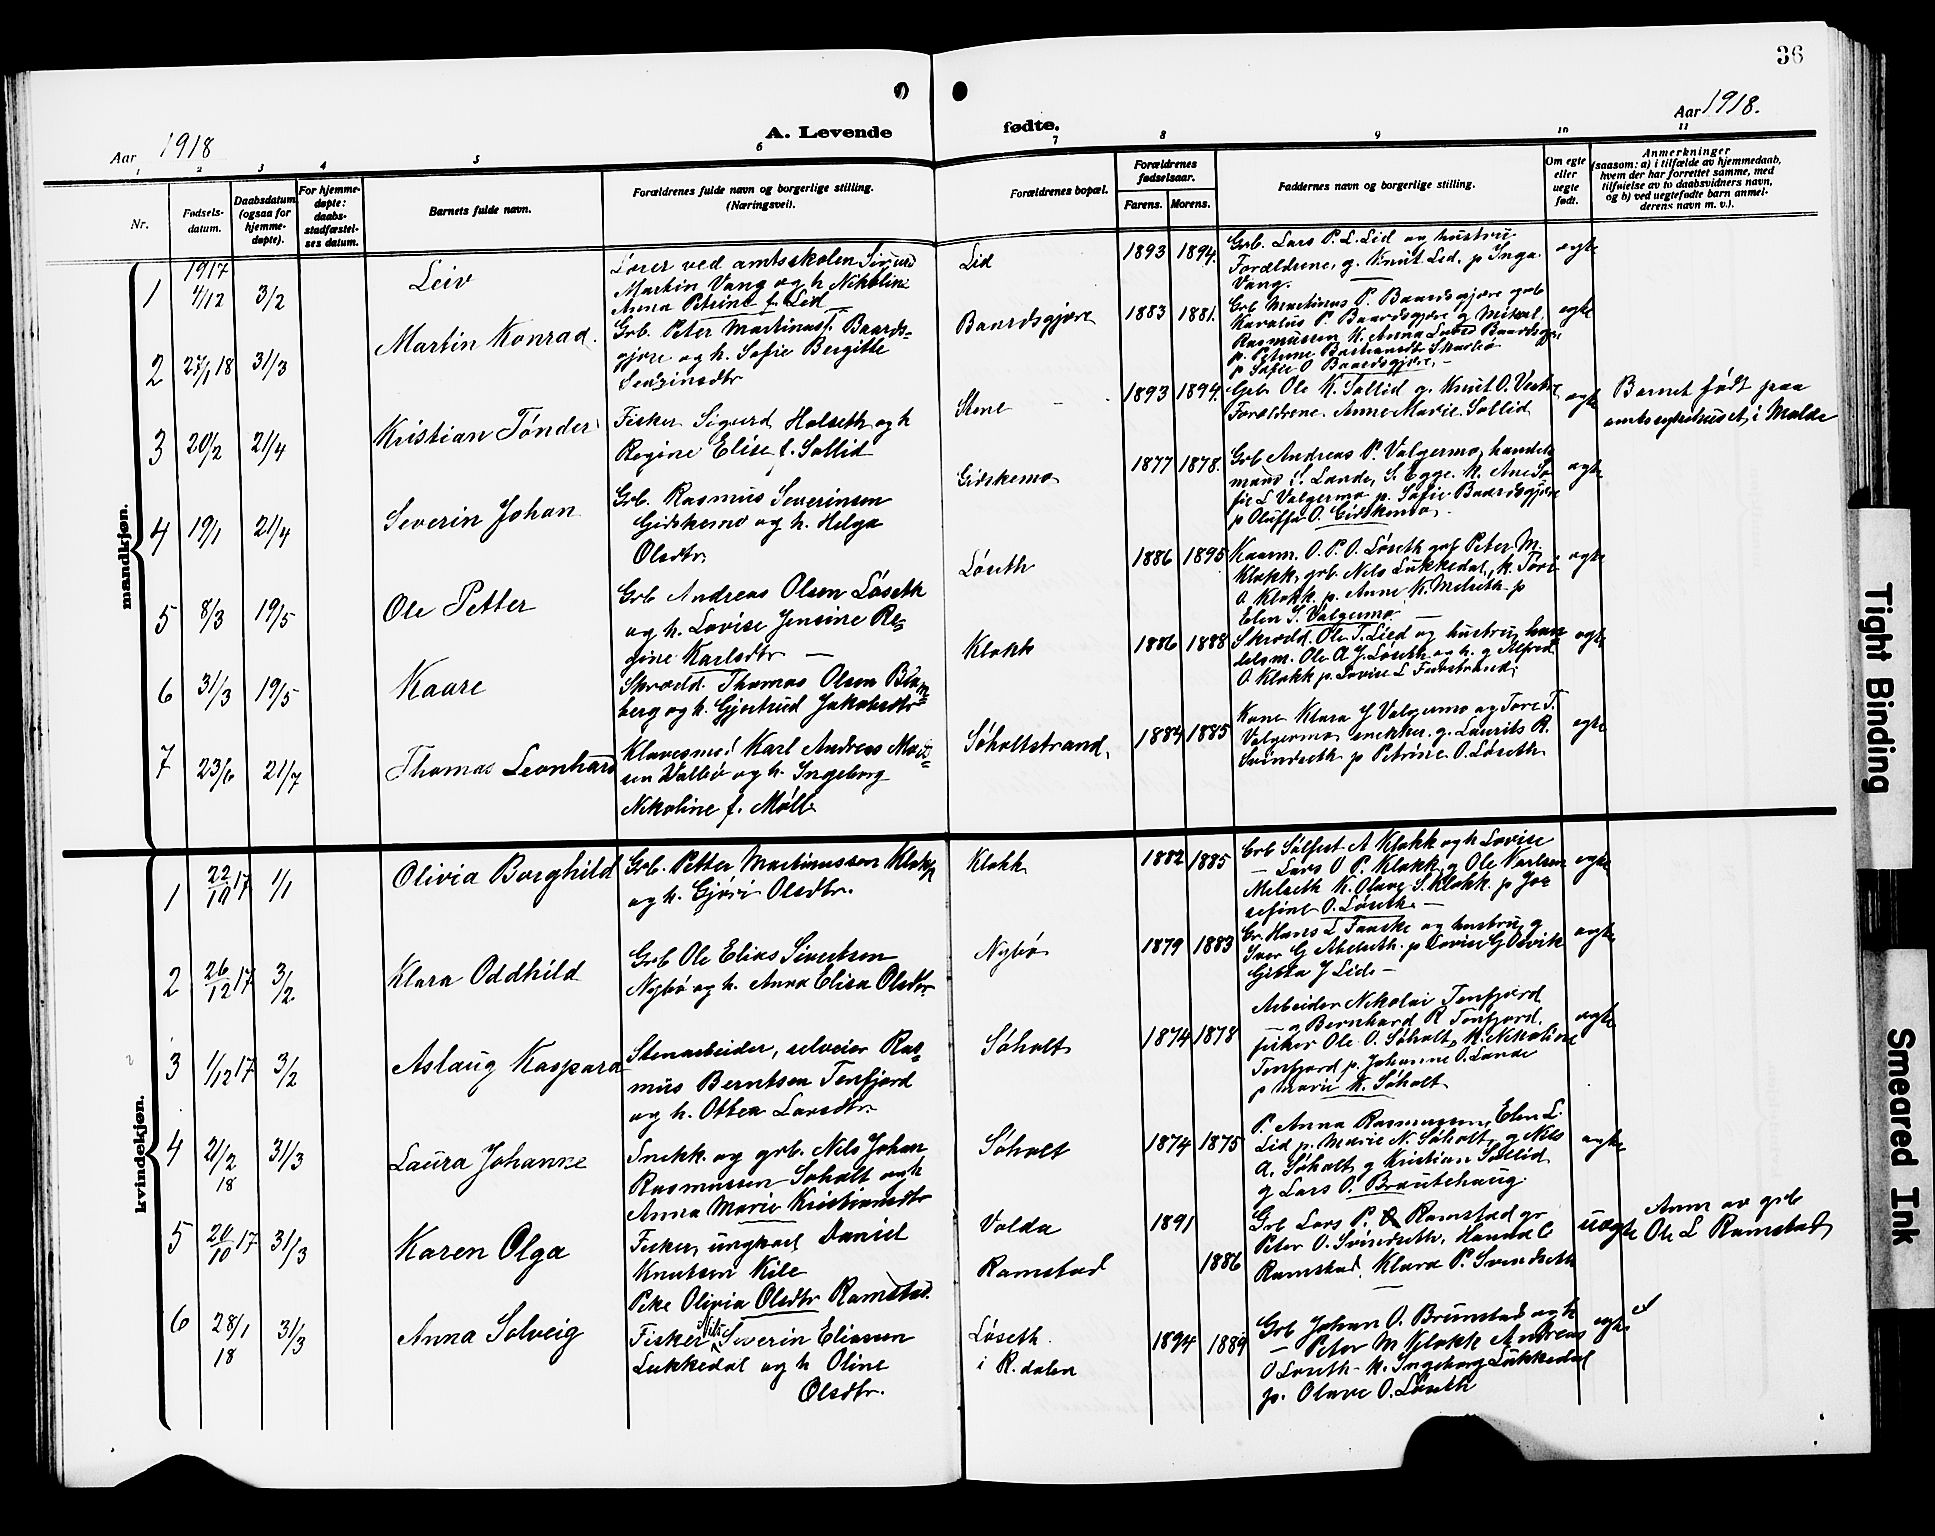 36
Aar 1918
A. Levende
fødte.
Aar 1918.
1 2 3 4 5 6 7 8 9 10 11
Nr.
Fødsels-
datum.
Daabsdatum
(ogsaa for
hjemme-
døpte).
For hjemme-
døpte:
daabs-
stadfæstel-
ses datum.
Barnets fulde navn.
Forældrenes fulde navn og borgerlige stilling.
(Næringsvei).
Forældrenes bopæl.
Forældrenes
fødselsaar.
Farens. Morens.
Faddernes navn og borgerlige stilling.
Om egte
eller
uegte
født.
Anmerkninger
(saasom: a) i tilfælde av hjemmedaab,
hvem der har forrettet samme, med
tilføielse av to daabsvidners navn,
og b) ved uegtefødte barn anmel-
derens navn m. v.).
mandkjøn.
1
1917
4/12
3/2
Leiv
Lærer ved amtsskolen Sigurd
Martin Vang og h. Nikoline
Anna Petrine f. Lid
Lid
1893 1894.
Grb. Lars P. L. Lid og hustru
Forældrene, g. Knut Lid, p Inga
Vang.
egte
2
27/1 18
31/3
Martin Konrad.
Grb. Peter Martinus P. Baards-
gjøre og h. Sofie Bergitte
Severinsdtr
Baardsgjøre
1883 1881.
Grb Martinus P. Baardsgjøre grb
Karolus P. Baardsgjøre g Mikal
Rasmussen K. Anna Baardsgj.
p Sofie O Baardsgjøre.
egte
3
20/2
21/4
Kristian Tönder
Fisker Sigurd Holseth og h
Regine Elise f. Sollid
Stene
1893 1894.
Grb Ole K. Sollid g. Knut O. Vestre
Forældrene. Anne Marie Sollid
egte
Barnet født paa
amtssykehuset i Molde
4
19/1
21/4
Severin Johan
Grb. Rasmus Severinsen
Gidskemo og h. Helga
Olsdtr.
Gidskemo
1877 1878.
Grb Andreas P. Valgermo, handels
mand S. Lande, S. Egge. K. Ane So
fie L Valgermo p. Sofie Baardsgjøre
p Oluffa O. Gidskemo.
egte
5
8/3
19/5
Ole Petter
Grb Andreas Olsen Løseth
og h. Lovise Jensine Re-
gine Karlsdtr
Løseth
1886 1895
Kaarm. O. P. O. Løseth grb Peter M.
Klokk, grb. Nils Lukkedal, k. Tore
O. Klokk p. Anne K. Melseth p
Elen I. Valgermo
egte
6
31/3
19/5
Kaare
Skrædd. Thomas Olsen Blom-
berg og h. Gjertrud Jakobsdtr
Klokk
1886 1888
Skrædd. Ole T. Lied og hustru han
delsm. Ole A J. Løseth og h. g Alfred
O. Klokk p. Lovise L Furstrand
egte
7
23/6
21/7
Thomas Leonhard
Klavesmed Karl Andreas
Valbø og h. Ingeborg
Nikoline f. Møll
Søholtstrand
1884 1885
Kone Klara J Valgermo og Tore T.
Valgermo snekker. g. Laurits R.
Svindseth p Petrine O. Løseth
egte
kvindekjøn.
1
22/10 17
1/1
Olivia Borghild
Grb. Petter Martinussen Klokk
og h. Gjøri Olsdtr.
Klokk
1882 1885
Grb Sølfest A Klokk og h Lovise
— Lars O P. Klokk, g Ole Karlsen
Melseth K. Olave S. Klokk. p Jo
sefine O. Løseth
egte
2
26/12 17
3/2
Klara Oddhild
Grb Ole Elias Sivertsen
Nybø og h. Anna Elisa Olsdtr.
Nybø
1879 1883
Gr. Hans L Tanske og hustru g
Iver G Melseth. p Lovise G
Gitta J Lid
egte
3
1/12 17
3/2
Aslaug Kaspara
Stenarbeider, selveier Ras-
mus Berntsen Tenfjord
og h. Ottea Larsdtr.
Søholt
1874 1878
Arbeider Nikolai Tenfjord
— g Bernhard R Tenfjord,
fisker Ole O. Søholt, K. Nikoline
Tenfjord p. Johanne O. Lande
p Marie K. Søholt
egte
4
21/2
18
31/3
Laura Johanne
Snekk. og grb. Nils Johan
Rasmussen Søholt og h
Anna Marie Kristiansdtr
Søholt
1874 1875
P. Anna Rasmussen, Elen L.
Lid p. Marie N. Søholt, g Nils
A. Søholt, g Kristian Sollid
g Lars O. Brautehaug
egte
5
20/10 17
31/3
Karen Olga
Fisker, ungkarl Daniel
Knutsen Kile
Pike Olivia Olsdtr Ramstad.
Volda
Ramstad
1891
1886
Grb Lars P. Ramstad gr
Peter O. Svindseth, Hanna C
Ramstad, Klara P. Svindseth
uegte
Anm av grb
Ole L Ramstad
6
28/1
18
31/3
Anna Solveig
Fisker Nils Severin Eliassen
Lukkedal og h Oline
Olsdtr.
Løseth
i R.dalen
1894 1889
Grb Johan O. Brunstad og h
— Peter M Klokk Andreas
O Løseth - k. Ingeborg Lukkedal
p. Olave O. Løseth
egte
Tight Binding
Smeared Ink